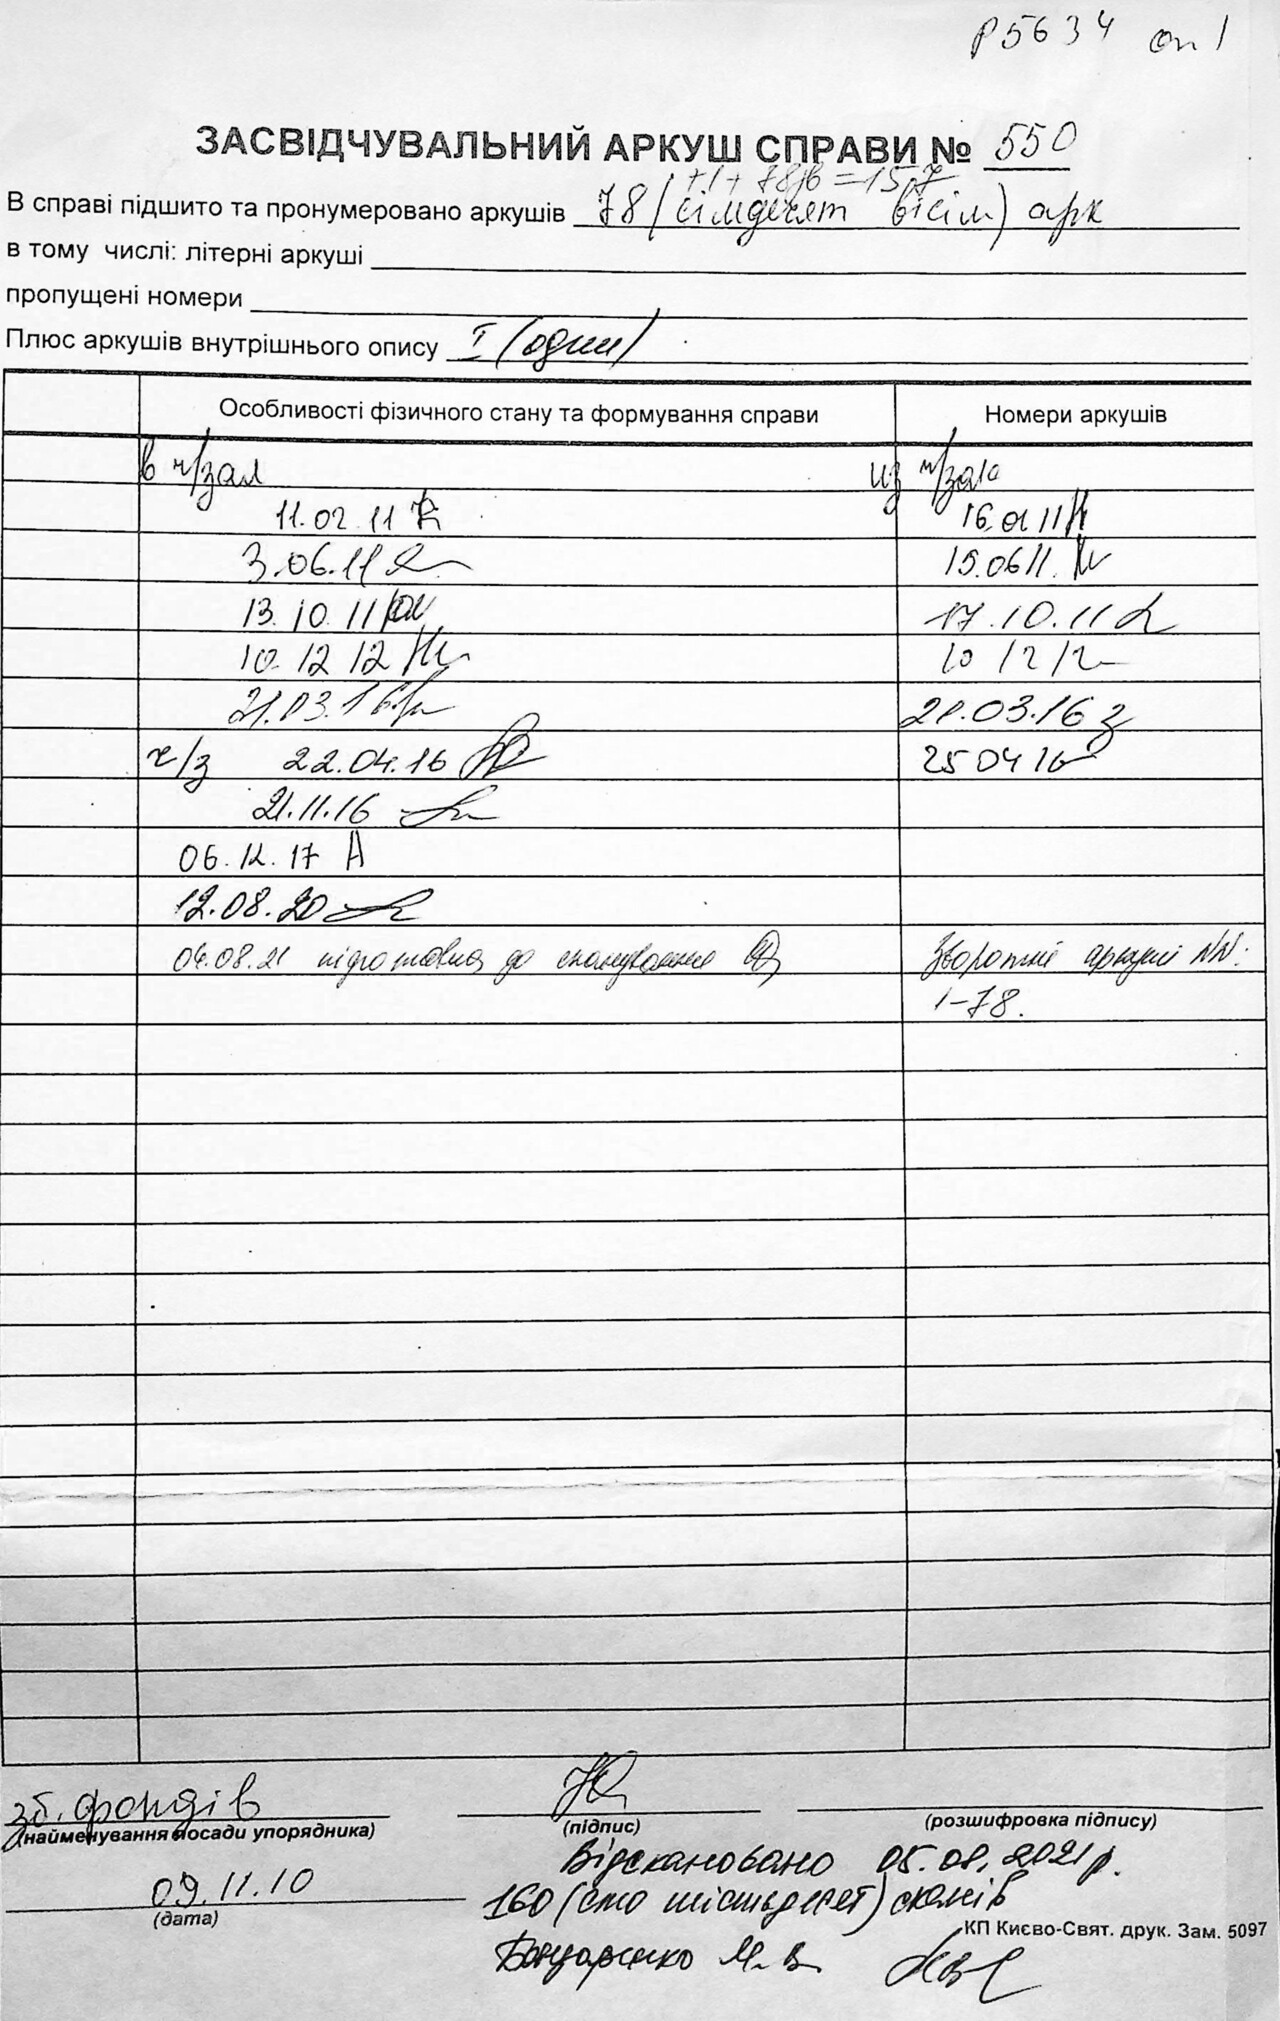 Р5634 оп 1
ЗАСВІДЧУВАЛЬНИЙ АРКУШ СПРАВИ № 550
+1+78зв=157
В справі підшито та пронумеровано аркушів 78 (сімдесят вісім) арк
в тому числі: літерні аркуші
пропущені номери
Плюс аркушів внутрішнього опису I (один)
Особливості фізичного стану та формування справи Номери аркушів
в ч/зал из ч/зала
11.02.11 16.02 11
3.06.11 15.06 11.
13.10.11 17.10.11
10.12 12 10 12 12
21.03.16 21.03.16
ч/з 22.04.16 25 04 16
21.11.16
06.12.17
12.08.20
04.08.21 підготовка до сканування Зворотні аркуші NN:
1-78.
зб. фондів
(найменування посади упорядника) (підпис) (розшифровка підпису)
Відскановано 05.08.2021р.
09.11.10
160 (сто шістдесят) сканів
(дата)
КП Києво-Свят. друк. Зам. 5097
Бондаренко М. В.